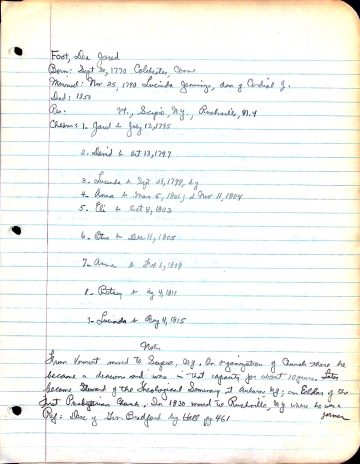 Foot, Dea Jared
Born: Sept 30, 1770 Colchester, Conn
Married: Nov 25, 1790 Lucinda Jennings, dau of Cordial J.
Died: 1850
Res: Vt., Scipio, N.Y., Rushville, N.Y
Children: 1. Jared b July 13, 1795
2. David b Oct 13, 1797
3. Lucinda b Sept 1799, d y
4. Anna b Mar 5, 1801; d Nov 11, 1804
5. Eli b Oct 4, 1803
6. Otis b Dec 11, 1805
7. Anna b Feb 6, 1809
8. Betsey b 4, 1811
9. Lucinda b Aug 4, 1815
Note,
From Vermont moved to Scipio, N.Y. On organization of Church there he
became a deacon and was in that capacity for about 10 years. Later
became Steward of the Theological Seminary at Auburn N.Y; an Elder of the
First Presbyterian Church. In 1830 moved to Rushville, N.Y where he was a
farmer
Ref: Desc of Gov. Bradford by Hall pg 461